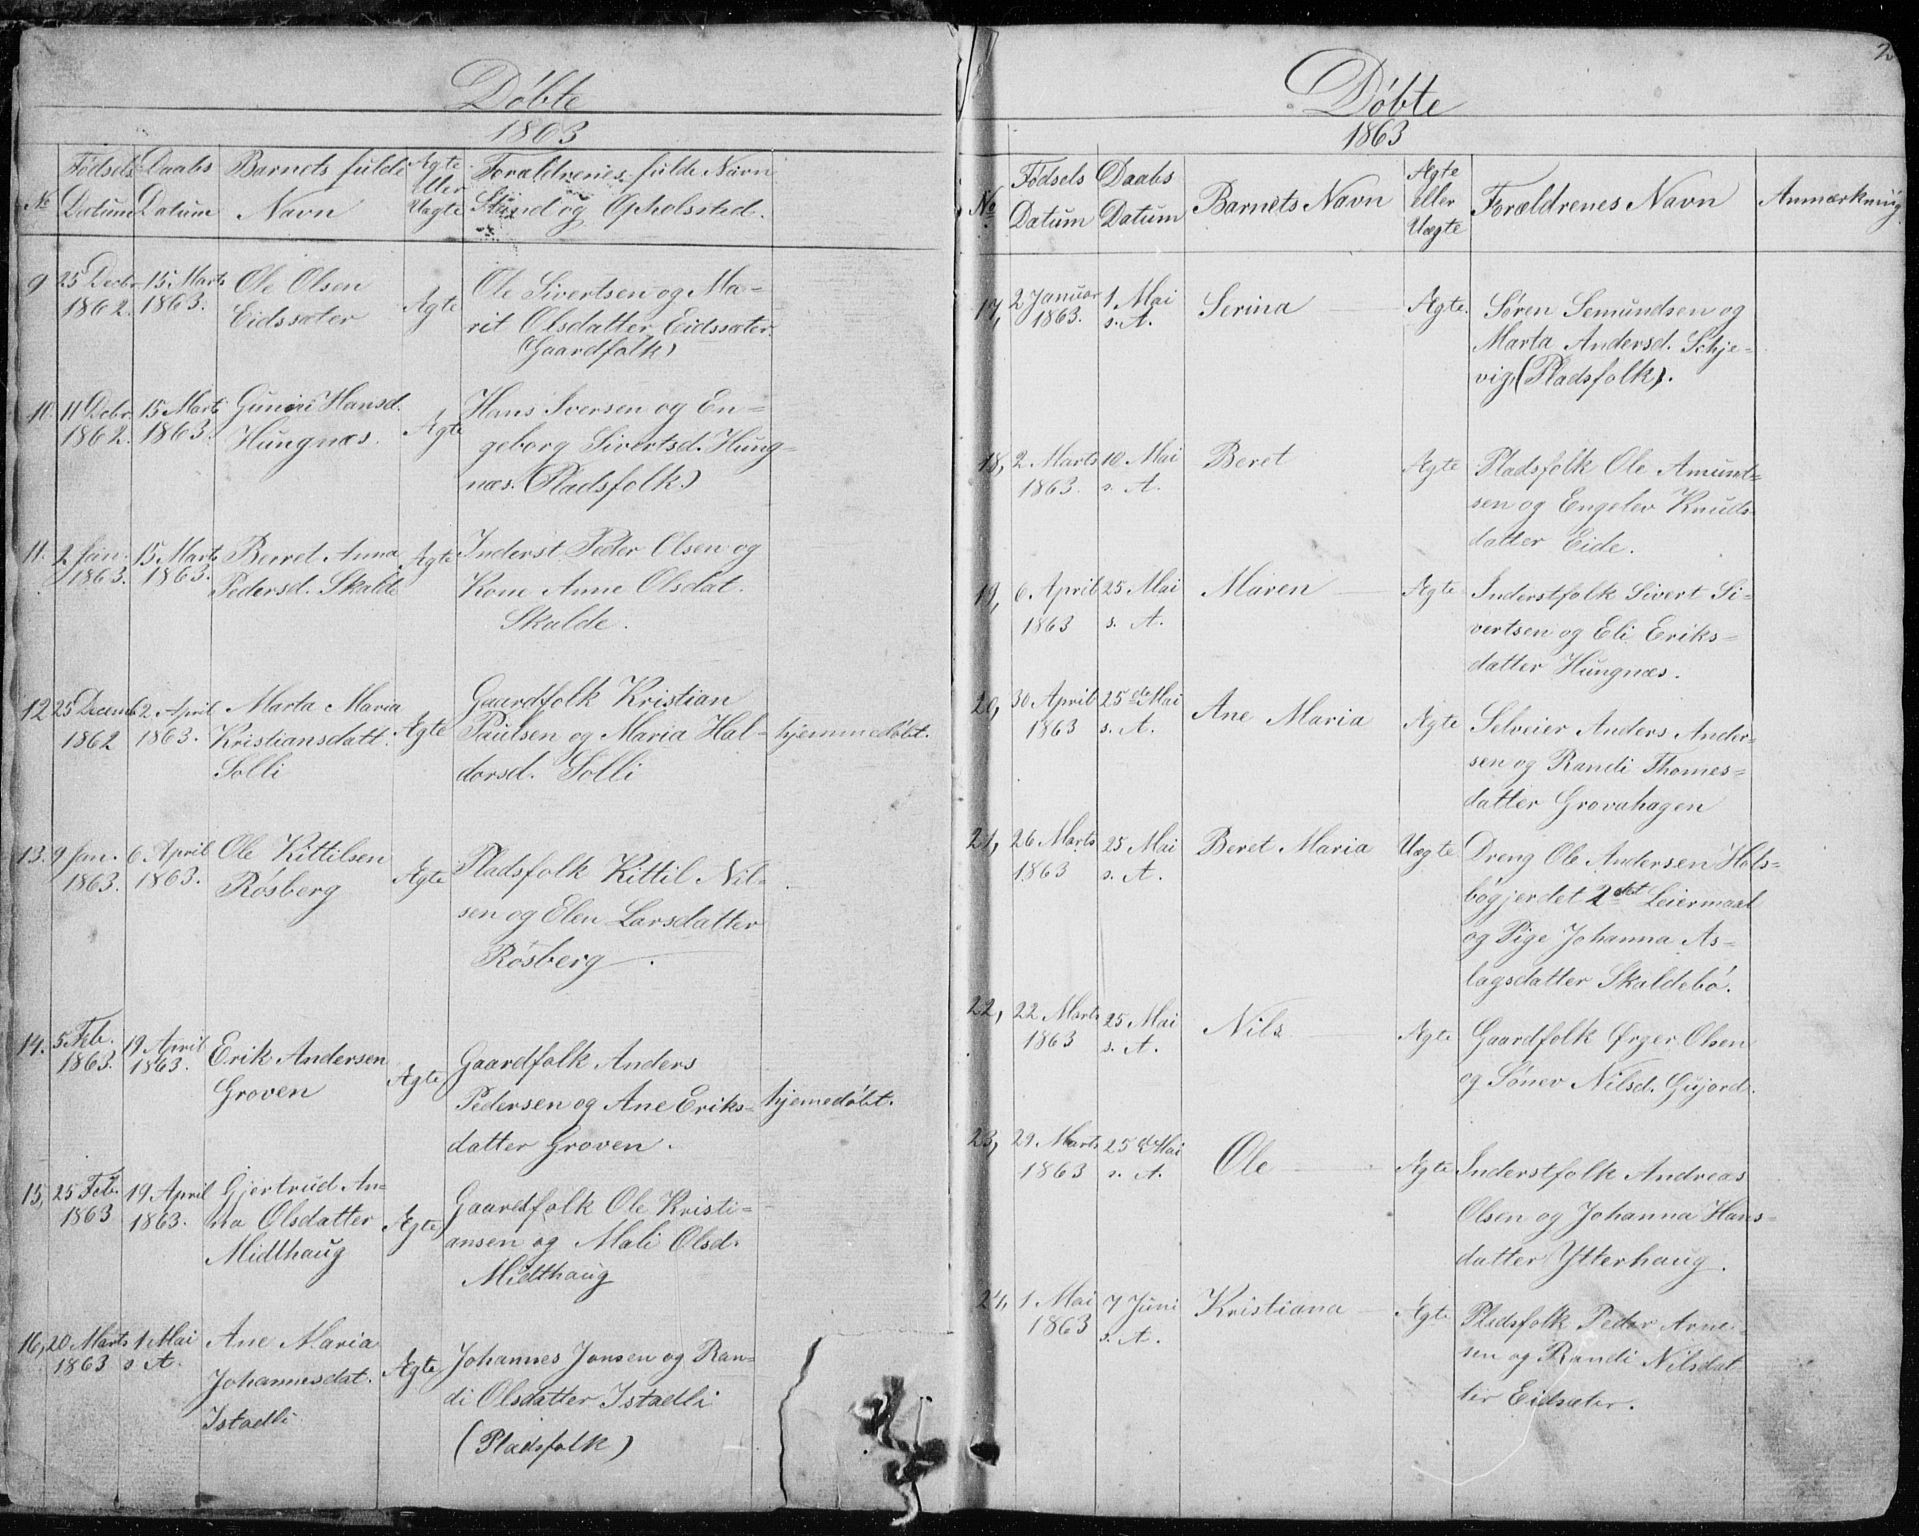 Døbte
1863
No
Fødsels Datum
Daabs Datum
Barnets fulde Navn
Ægte eller Uægte
Forældrenes fulde Navn
Stand og Opholssted.
9 25 Decbr. 1862. 15 Marts 1863. Ole Olsen Eidssæter Ægte
Ole Sivertsen og Ma-
rit Olsdatter Eidssæter.
(Gaardfolk)
10. 11 Dcbr. 1862. 15 Marts 1863. Hansd. Hungnæs. Ægte
Hans Iversen og En-
geborg Sivertsd. Hung-
næs. (Pladsfolk)
11. 2 Jan. 1863. 15 Marts 1863. Berret Anna Pedersd. Skalde Ægte
Inderst Peder Olsen og
Kone Anne Olsdat.
Skalde.
12 25 Decemb 1862 2 April 1863. Marta Maria Kristiansdatt. Solli Ægte
Gaardfolk Kristian
Paulsen og Maria Hal- hjemmedøbt.
dorsd. Solli
13. 9 Jan. 1863. 6 April 1863. Ole Kittilsen Røsberg Ægte
Pladsfolk Kittil Nil-
sen og Elen Larsdatter
Røsberg.
14. 5 Feb. 1863. 19 April 1863. Erik Andersen Groven Ægte
Gaardfolk Anders
Pedersen og Ane Eriks- hjemedøbt.
datter Groven.
15, 25 Feb. 1863 19 April 1863. Gjertrud Anna Olsdatter Midthaug Ægte
Gaardfolk Ole Kristi-
ansen og Mali Olsd.
Midthaug
16, 20 Marts 1863 1 Mai s. A. Ane Maria Johannesdat. Istadli Ægte
Johannes Jonsen og Ran-
di Olsdatter Istadli
(Pladsfolk)
2
Døbte
1863
No
Fødsels Datum
Daabs Datum
Barnets Navn
Ægte eller Uægte
Forældrenes Navn
Anmærkning
17, 2 Januar 1863. 1 Mai s. A. Serina Ægte.
Søren Semundsen og
Marta Andersd. Schje-
vig, (Pladsfolk).
18, 2 Marts 1863. 10 Mai s. A. Beret Ægte
Pladsfolk Ole Amund-
sen og Engelev Knuds-
datter Eide.
19, 6 April 1863 25 Mai s. A. Maren Ægte
Inderstfolk Sivert Si-
vertsen og Eli Eriks-
datter Hungnæs.
20, 30 April 1863 25 de Mai s. A. Ane Maria Ægte
Selveier Anders Ander-
sen og Randi Thomes-
datter Grovahagen
21, 26 Marts 1863 25 Mai s. A. Beret Maria Uægte
Dreng Ole Andersen Hols-
bøgjerdet 2det Leiermaal
og Pige Johanna As-
lagsdatter Skaldebø.
22, 22 Marts 1863 25 Mai s. A. Nils Ægte
Gaardfolk Ørger Olsen
og Nilsd. Gujord.
23, 29 Marts 1863 25 d Mai s. A. Ole Ægte
Inderstfolk Andreas
Olsen og Johanna Hans-
datter Ytterhaug.
24, 1 Mai 1863 7 Juni s. A. Kristiana Ægte
Pladsfolk Peder Arne-
sen og Randi Nilsdat
ter Eidsæter.